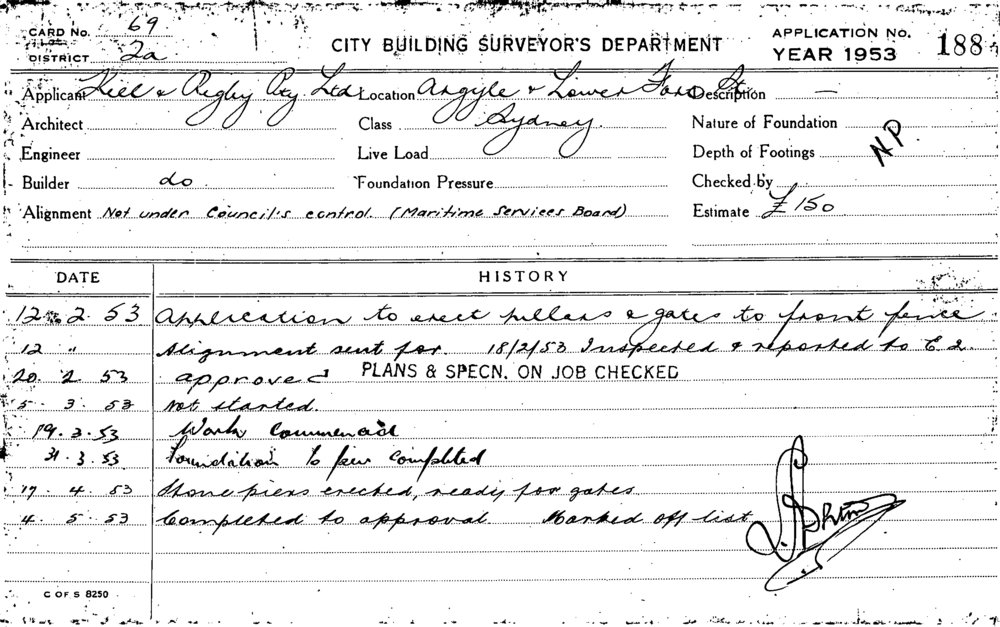 CARD No. 69
DISTRICT 2a
CITY BUILDING SURVEYOR'S DEPARTMENT
APPLICATION No. 188
YEAR 1953
Applicant Kell & Rigby Pty Ltd Location Argyle & Lower Fort St Description —
Architect Class Sydney. Nature of Foundation
Engineer Live Load Depth of Footings NP
Builder do Foundation Pressure Checked by
Alignment Not under Council's control. (Maritime Services Board) Estimate £150
DATE HISTORY
12. 2. 53 Application to erect pillars & gates to front fence
12 " Alignment sent for. 18/2/53 Inspected & reported to E 2.
20. 2. 53 approved PLANS & SPECN. ON JOB CHECKED
5. 3. 53 Not started.
19. 3. 53 Work Commenced
31. 3. 53 Foundation to pier completed
17. 4. 53 Stone piers erected, ready for gates
4. 5. 53 Completed to approval. Marked off list
C OF S 8250